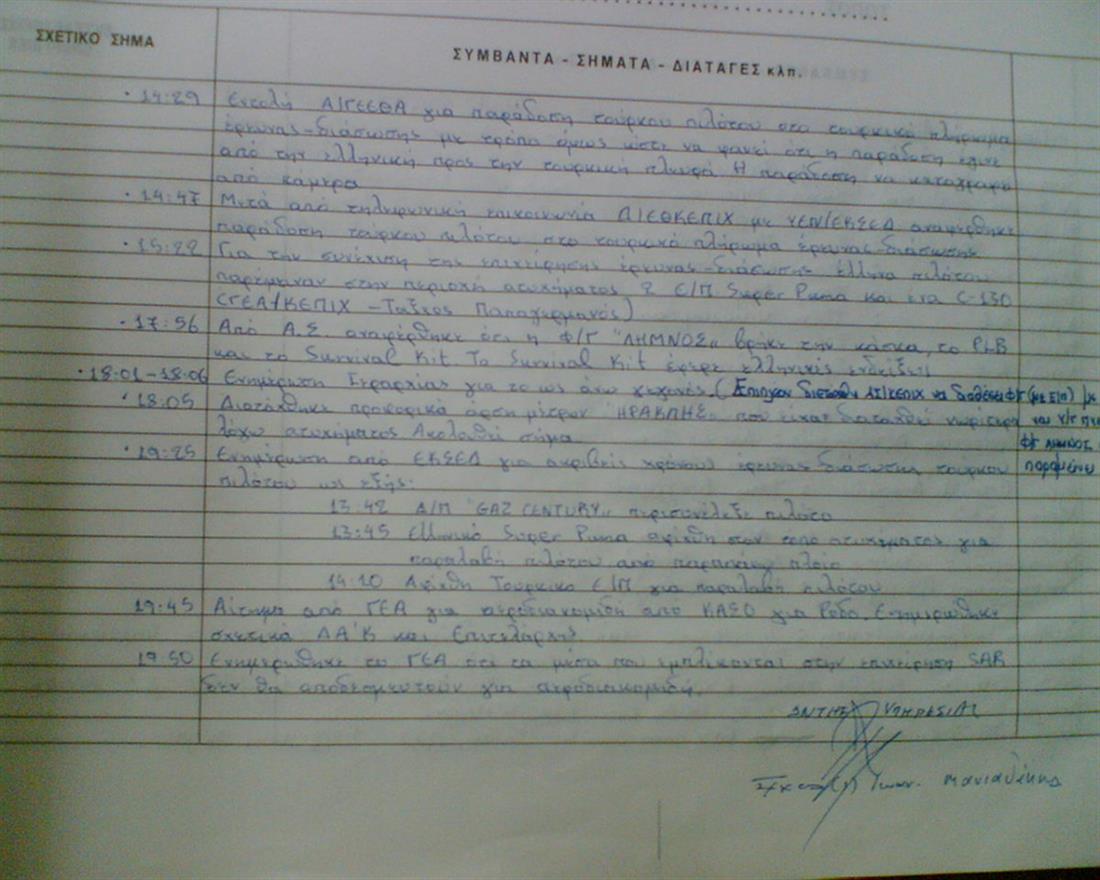 ΣΧΕΤΙΚΟ ΣΗΜΑ
ΣΥΜΒΑΝΤΑ - ΣΗΜΑΤΑ - ΔΙΑΤΑΓΕΣ κλπ.
· 14:29 Εντολή Α/ΓΕΕΘΑ για παράδοση τούρκου πιλότου στο τουρκικό πλήρωμα
έρευνας-διάσωσης με τρόπο όμως ώστε να φανεί ότι η παράδοση έγινε
από την ελληνική προς την τουρκική πλευρά. Η παράδοση να καταγραφεί
από κάμερα
· 14:47 Μετά από τηλεφωνική επικοινωνία ΔΙΕΘΚΕΠΙΧ με ΥΕΝ/ΕΚΣΕΔ αναφέρθηκε
παράδοση τούρκου πιλότου στο τουρκικό πλήρωμα έρευνας διάσωσης
· 15:22 Για την συνέχιση της επιχείρησης έρευνας-διάσωσης έλληνα πιλότου
παρέμειναν στην περιοχή ατυχήματος 2 Ε/Π Super Puma και ένα C-130
(ΓΕΑ/ΚΕΠΙΧ - Ταξχος
· 17:56 Από Α.Σ. αναφέρθηκε ότι η Φ/Γ "ΛΗΜΝΟΣ" βρήκε την κάσκα, το PLB
και το Survival Kit. Το Survival Kit έφερε ελληνικές ενδείξεις
· 18:01-18:06 Ενημέρωση Ιεραρχίας για το ως άνω γεγονός. (Επιπλέον διετάχθη ΑΣ/ΚΕΠΙΧ να διαθέσει φ/γ (με Ε/Π)
· 18:05 Διατάχθηκε προφορικά άρση μέτρων "ΗΡΑΚΛΗΣ" που είχαν διαταχθεί νωρίτερα
λόγω ατυχήματος Ακολουθεί σήμα φ/γ ΛΗΜΝΟΣ
· 19:25 Ενημέρωση από ΕΚΣΕΔ για ακριβείς χρόνους έρευνας-διάσωσης τούρκου
πιλότου ως εξής:
13:42 Δ/Π "GAZ CENTURY" περισυνέλεξε πιλότο
13:45 Ελληνικό Super Puma αφίχθη στον τόπο ατυχήματος για
παραλαβή πιλότου από παραπάνω πλοίο
14:10 Αφίχθη Τουρκικό Ε/Π για παραλαβή πιλότου
19:45 Αίτημα από ΓΕΑ για αεροδιακομιδή από ΚΑΣΟ για Ρόδο. Ενημερώθηκε
σχετικά ΔΑ'Κ και Επιτελάρχης
19:50 Ενημερώθηκε το ΓΕΑ ότι τα μέσα που εμπλέκονται στην επιχείρηση SAR
δεν θα αποδεσμευτούν για αεροδιακομιδή.
ΔΝΤΗΣ ΥΠΗΡΕΣΙΑΣ
Ιωαν. Μανιαδάκης